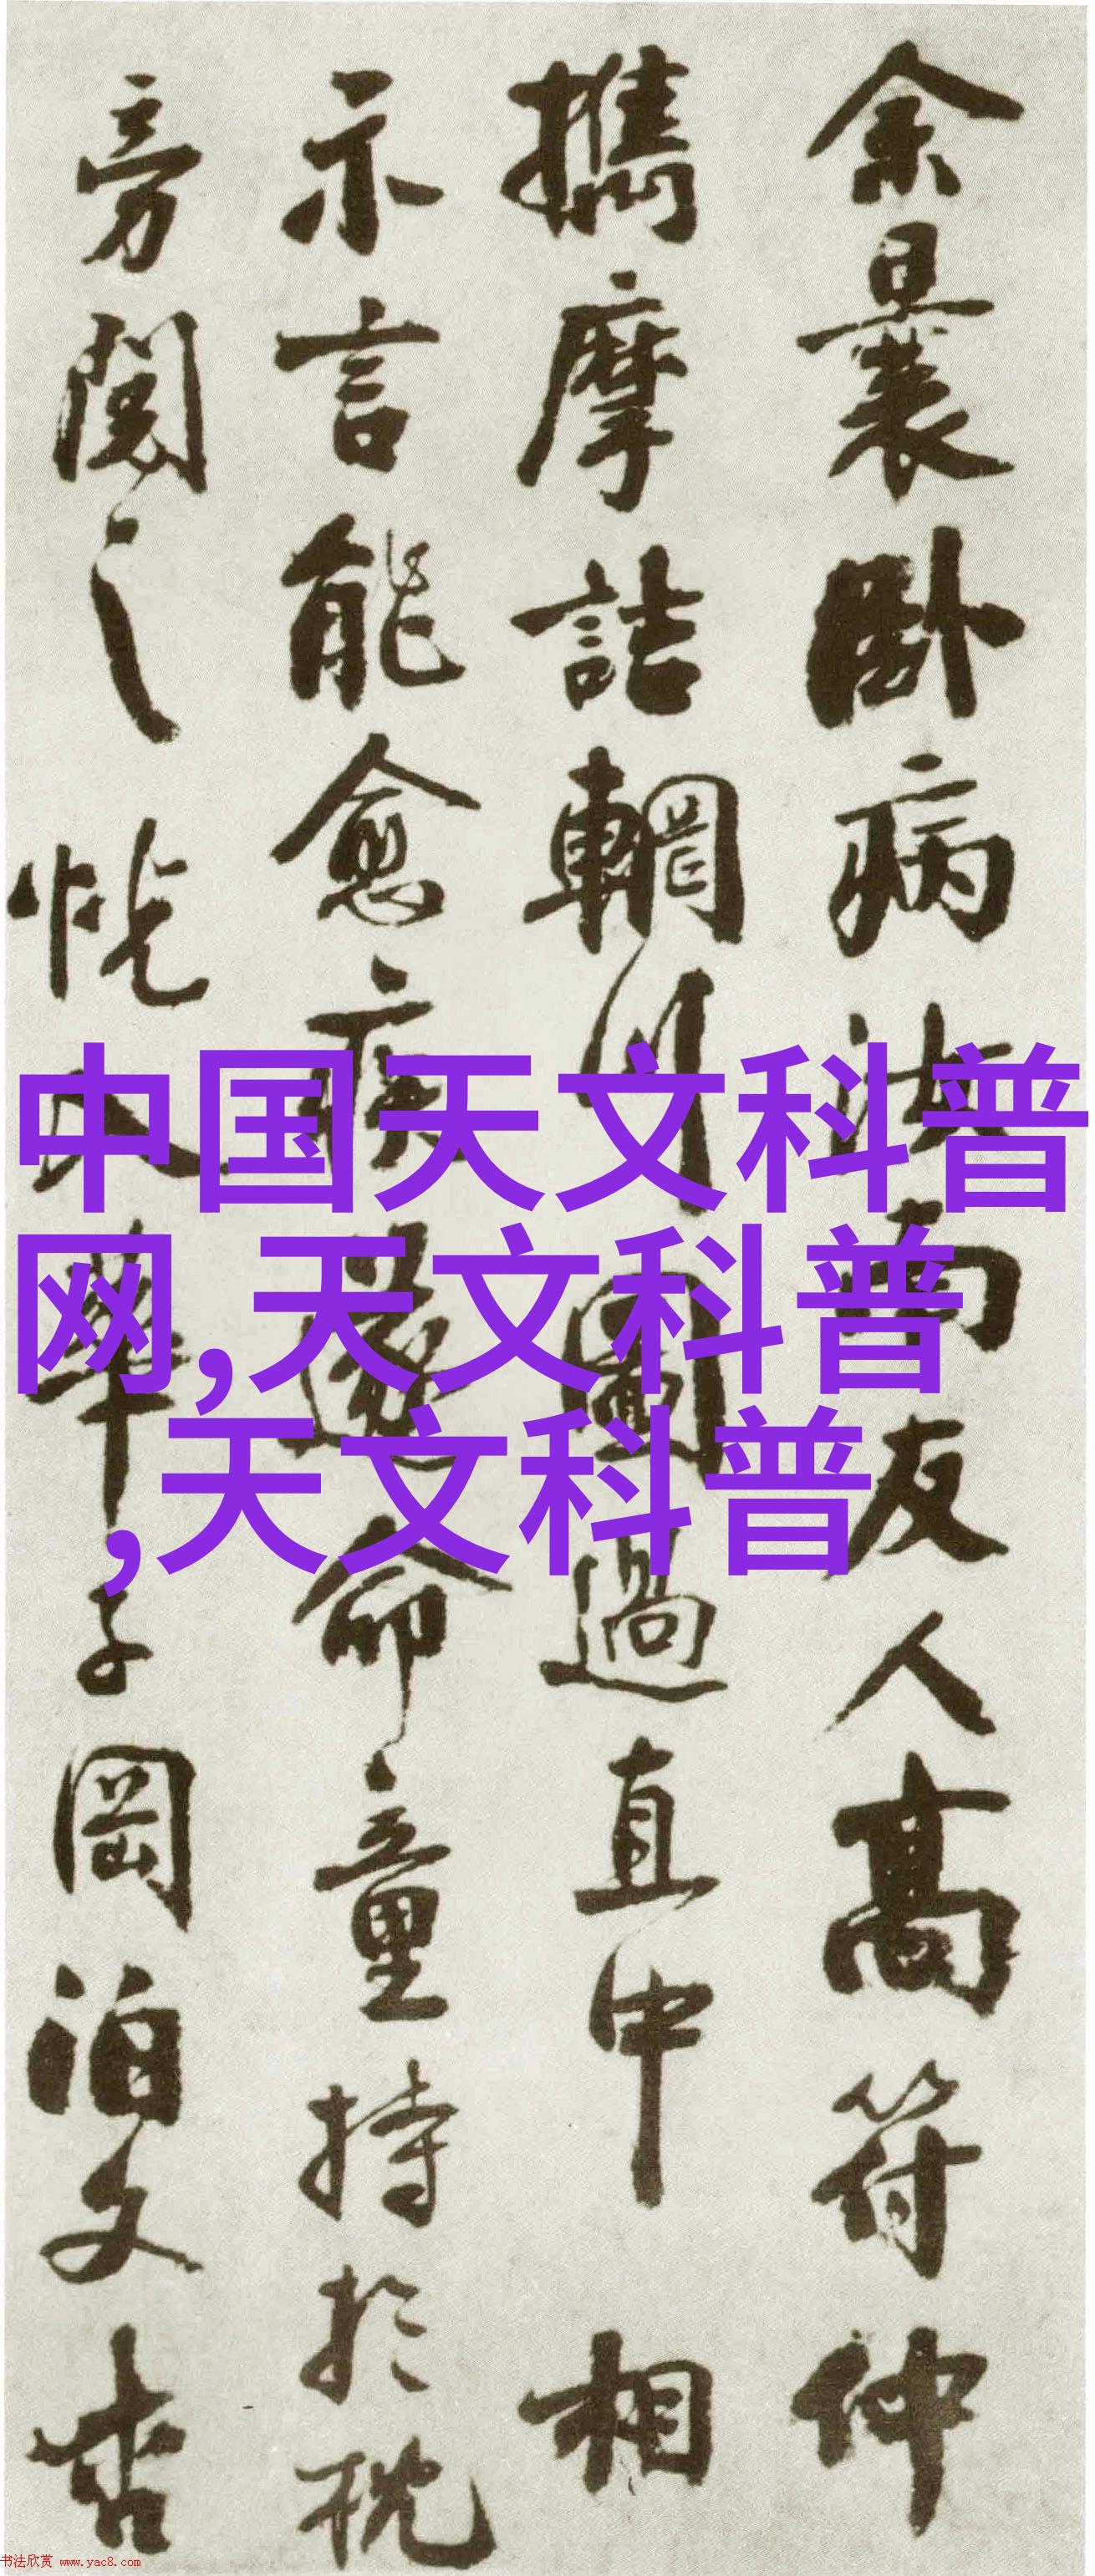 余曩卧病汝南友人高符仲
攜摩詰輞川圖過直中相
示言能愈疾遂命童持於枕
旁閱之恍入華子岡泊文杏
中国天文科普
网,天文科普
,天文科普
书法欣赏 www.yac8.com